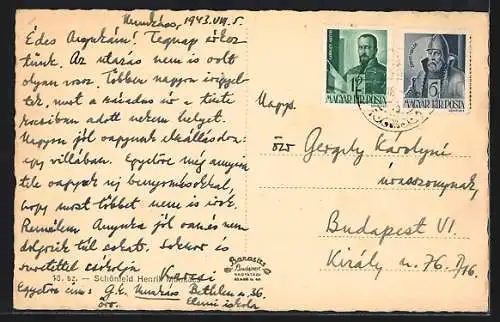 Munkács, 1943.VII.5.
Édes Anyukám! Tegnap érkez-
tünk. Az utazás nem is volt
olyan rossz. Többen nagyon irigyel-
tek, mert a kalauz úr a tiszti
kocsiban adott nekem helyet.
Nagyon jól vagyunk elszállásolva:
egy villában. Egyelőre még annyira
tele vagyunk új benyomásokkal,
hogy most többet nem is írok.
Remélem Anyuka jól van és nem
dolgozik túl sokat. Sokszor és
szeretettel csókolja
Karcsi
Egyelőre cím: G.K. Munkács Bethlen u. 36.
Elemi iskola
10. sz. — Schönfeld Henrik
Barasits
Budapest
Nagys.
özv Gergely Károlyné
úrasszonynak,
Budapest VI.
Király u. 76. I/16.
12
MAGYAR KIR. POSTA
6
MAGYAR KIR. POSTA